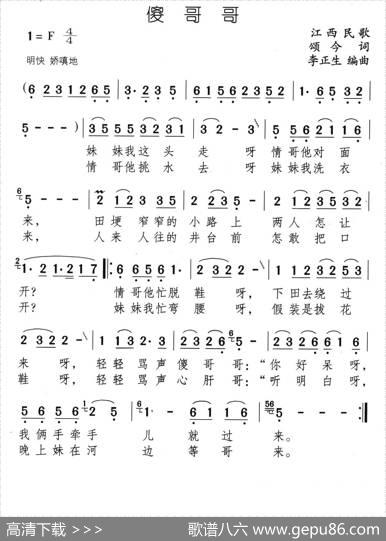 傻哥哥
1=F 4/4
江西民歌
颂今 词
明快 娇嗔地
李正生 编曲
(6 2 3 1 2 1 6 5 6 1 5 2 3 5 3 2 1 2 3 5 2 1 6
5 - - -) 3 5 5 3 5 3 2 1 2 3 2 - 3 5 6 2 1 6 1 5
妹妹我这头走呀 情哥他对面
情哥他挑水去呀 妹妹我洗衣
5 - - - 2 1 2 3 5 2 3 5 3 2 1 2 2 3 5
来， 田埂窄窄的小路上 两人怎让
来， 人来人往的井台前 怎敢把口
开？ 情哥他忙脱鞋呀， 下田去绕过
开？ 妹妹我忙弯腰呀， 假装是拔花
来呀， 轻轻骂声傻哥哥：“你好呆呀，
鞋呀， 轻轻骂声心肝哥：“听明白呀，
5 6 5 6 2 5 1 - 6 1 1 6 5 - - -
我俩手牵手 儿就过来。
晚上妹在河 边等哥来。
高清下载 >>>
歌谱八六 www.gepu86.com